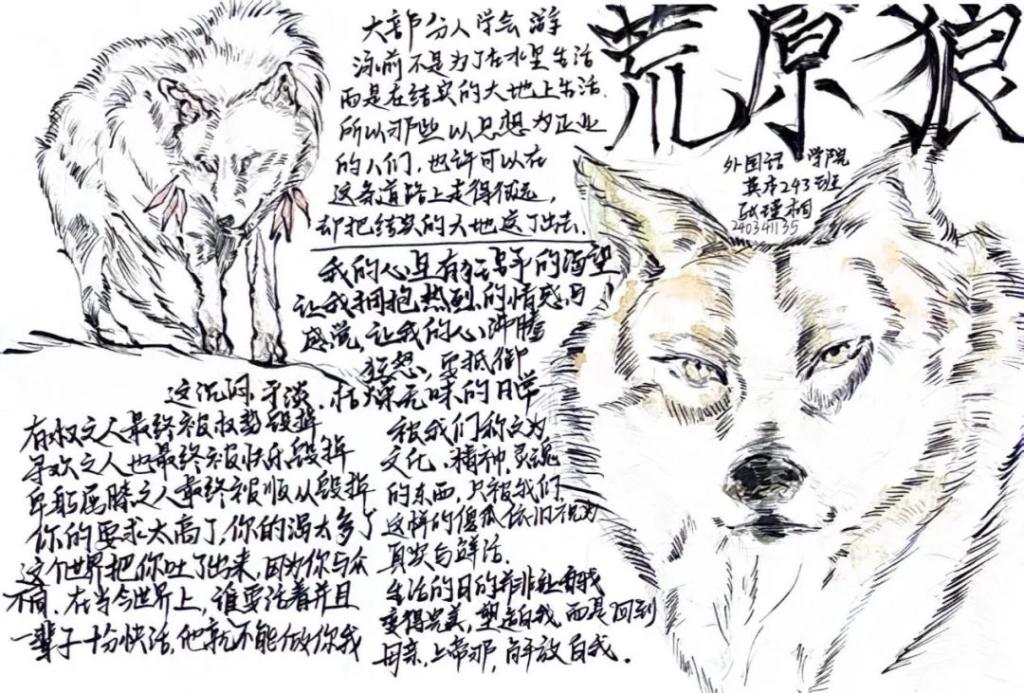 荒原狼
外国语学院
英本243班
张瑾桐
240341135
大部分人学会游
泳前不是为了在水里生活
而是在结实的大地上生活.
所以那些以思想为正业
的人们,也许可以在
这条道路上走得很远,
却把结实的大地丢了出去.
我的心里有 的渴望
让我拥抱热烈的情感与
感觉,让我的心沸腾
狂怒,要抵御
这沉闷,平淡,枯燥无味的日常
有权之人最终被权势毁掉
寻欢之人也最终被快乐毁掉
卑躬屈膝之人最终被顺从毁掉
你的要求太高了,你的渴太多了
这个世界把你吐了出来,因为你与众
不同.在当今世界上,谁要活着并且
一辈子十分快活,他就不能做你我
被我们称之为
文化、精神、灵魂
的东西,只被我们
这样的傻瓜依旧视为
真实与鲜活.
生活的目的并非让自我
变得完美,塑造自我,而是回到
母亲,上帝那,解放自我.